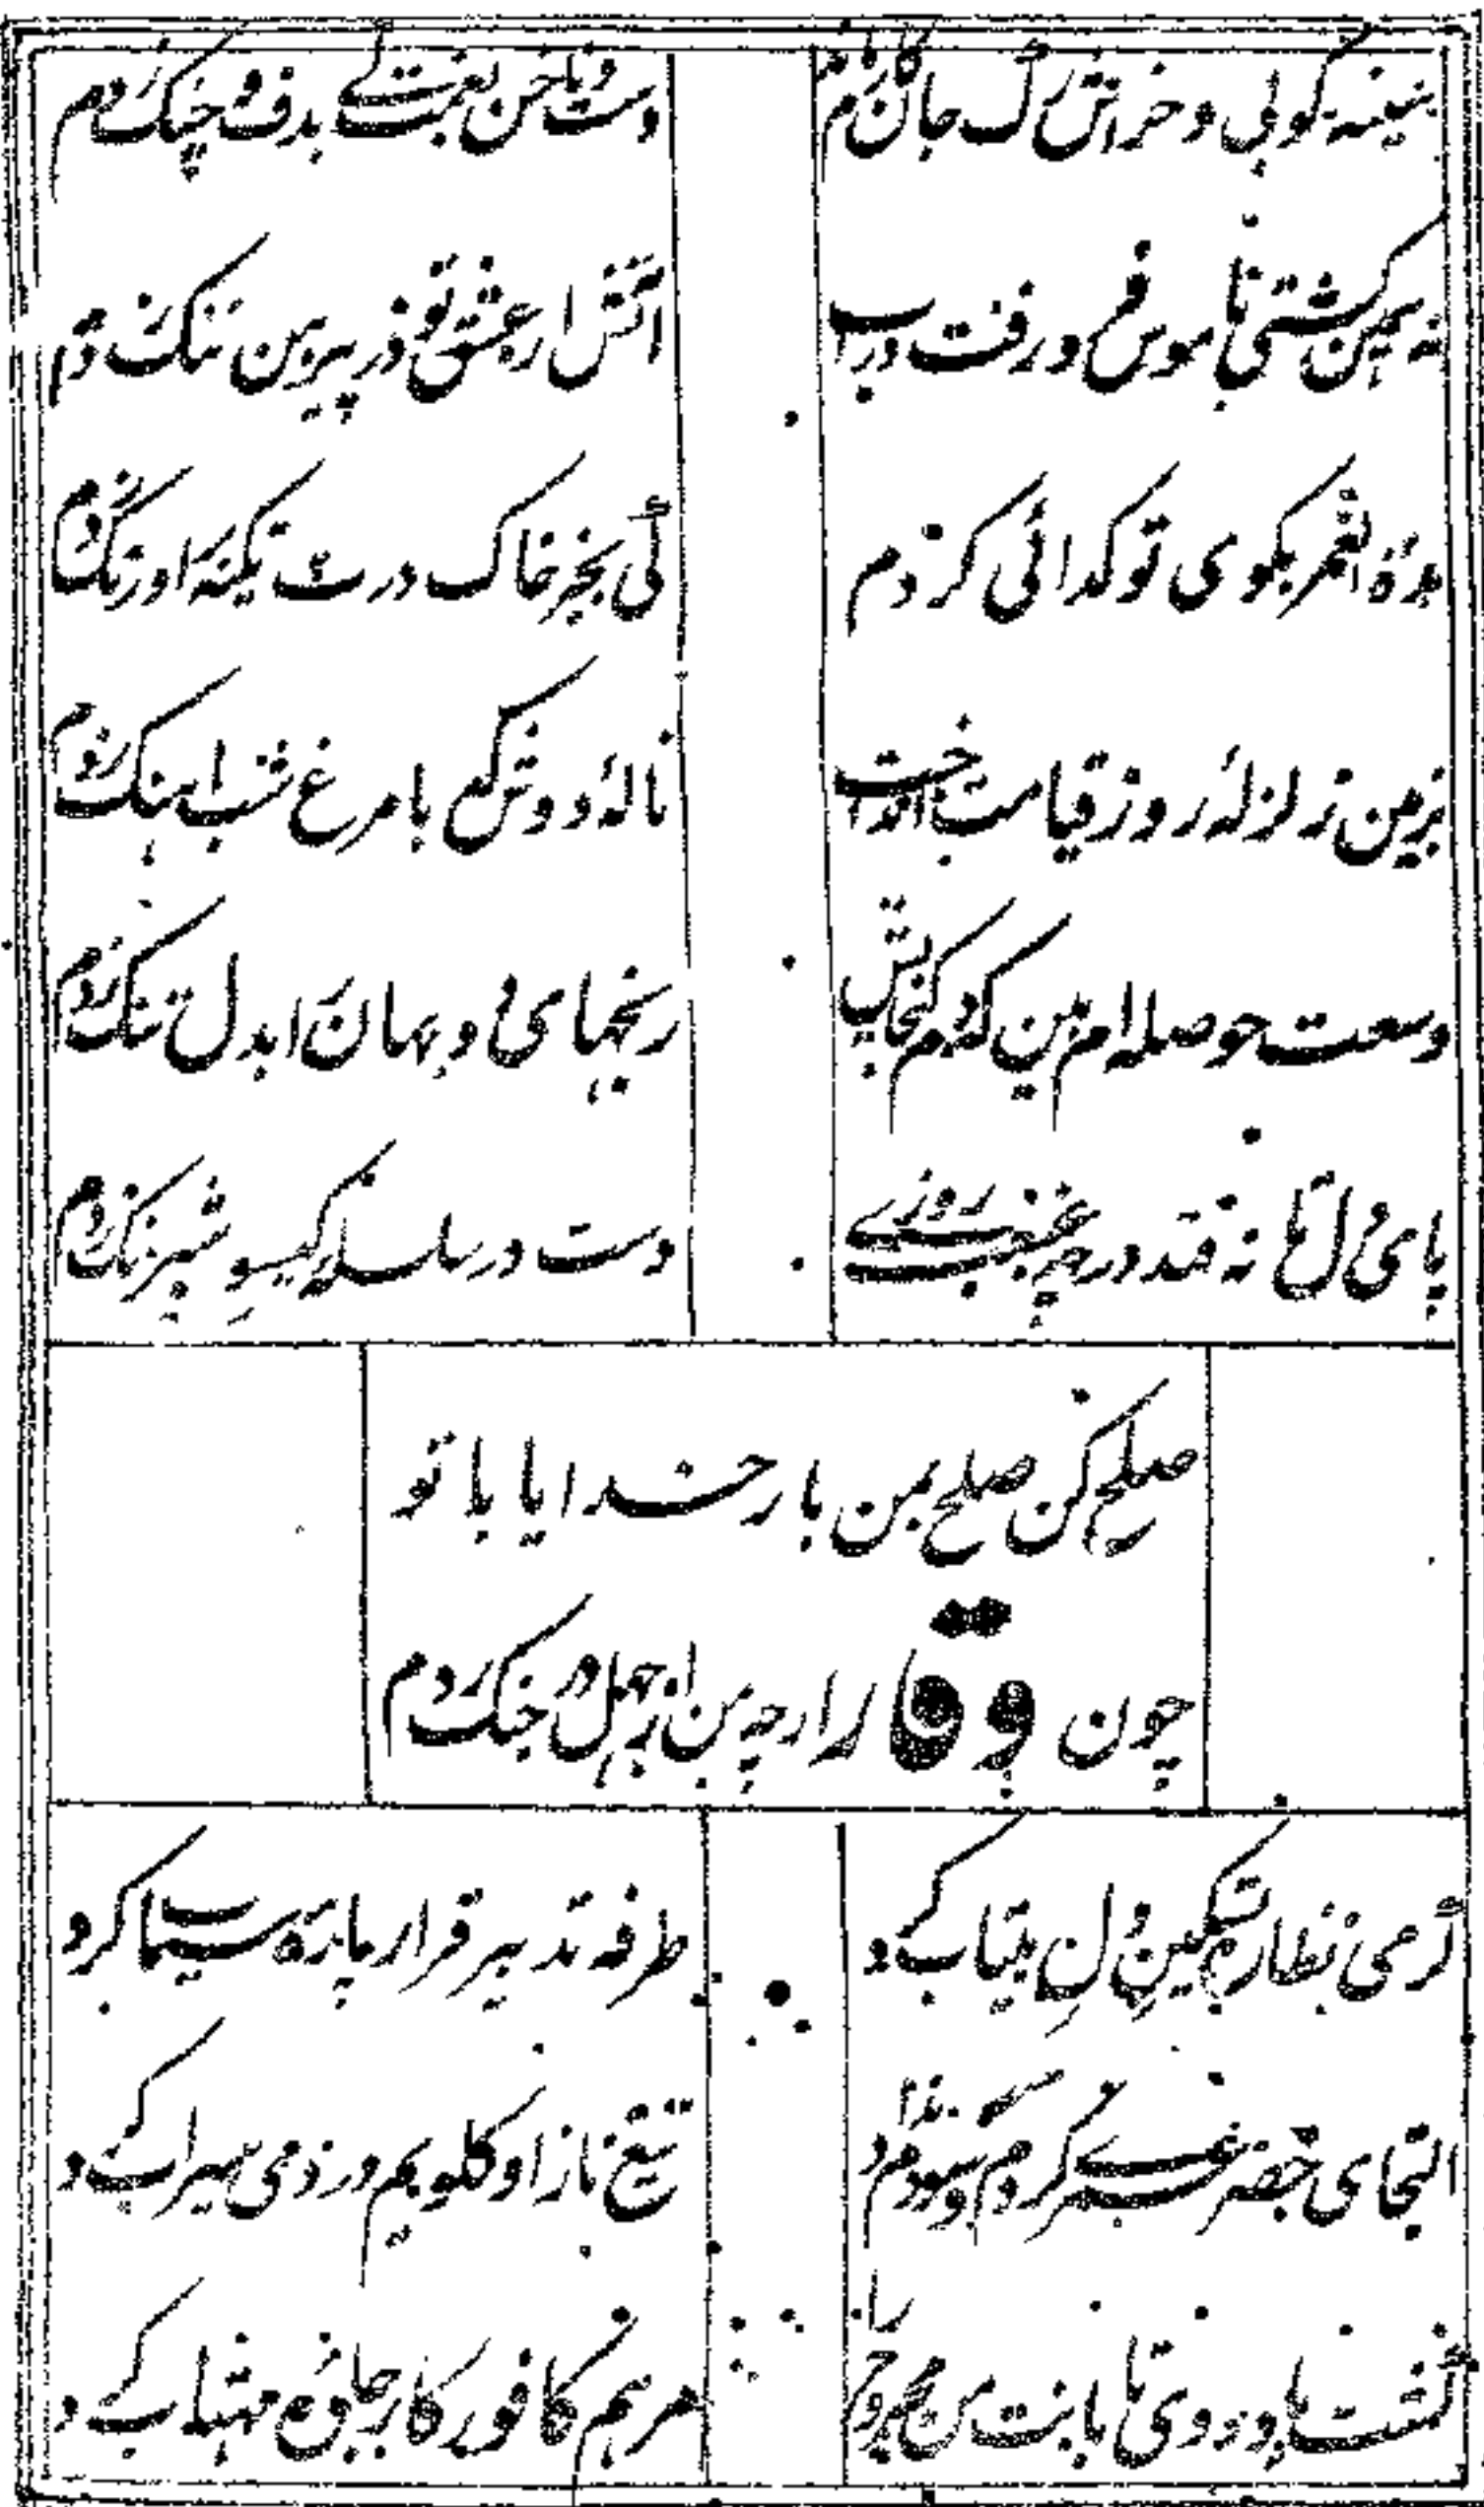 سینه کوبی و خراش رگ جان کارم
دست و ناخن بدف و چنگ زدم
نه همین کشتی ناموس فرو رفت در آب
آتش از عشق تو در پیرهن ننگ زدم
همه عمر بکوی تو گدائی کردم
کی بجز خاک درت تکیه اورنگ زدم
بزمین زلزلهٔ روز قیامت انداخت
نالهٔ دوش که با مرغ شب آهنگ زدم
وسعت حوصله ام بین که گنجایش
رنجهای دو جهان را بدل تنگ زدم
پای دل تا نه فتد در چه غبغب روزی
دست در سلسلهٔ گیسوی شبرنگ زدم
صلح کن صلح بمن بار خدایا با تو
چون وقار ارچه من از جهل در جنگ زدم
گرمی نظاره تسکین دل بیتاب کرد
طرفه تدبیر قرار پارهٔ سیماب کرد
التجای خضر کردم
تیغ ناز او گلویم در دمی سیراب کرد
گشت تا من مجروح را
مرهم کافور کار جلوهٔ مهتاب کرد